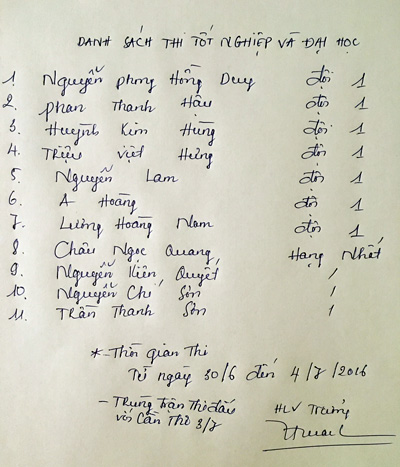 DANH SÁCH THI TỐT NGHIỆP VÀ ĐẠI HỌC
1 Nguyễn phong Hồng Duy đội 1
2. phan Thanh Hậu đội 1
3. Huỳnh Kim Hùng đội 1
4. Triệu Việt Hưng đội 1
5. Nguyễn Lam đội 1
6. A Hoàng đội 1
7. Lương Hoàng Nam đội 1
8. Châu Ngọc Quang Hạng Nhất
9. Nguyễn Kiên Quyết /
10. Nguyễn Chí Sơn /
11. Trần Thanh Sơn /
* - Thời gian Thi
Từ ngày 30/6 đến 4/7/2016
- Trùng trận Thi đấu
với Cần Thơ 3/7
HLV Trưởng